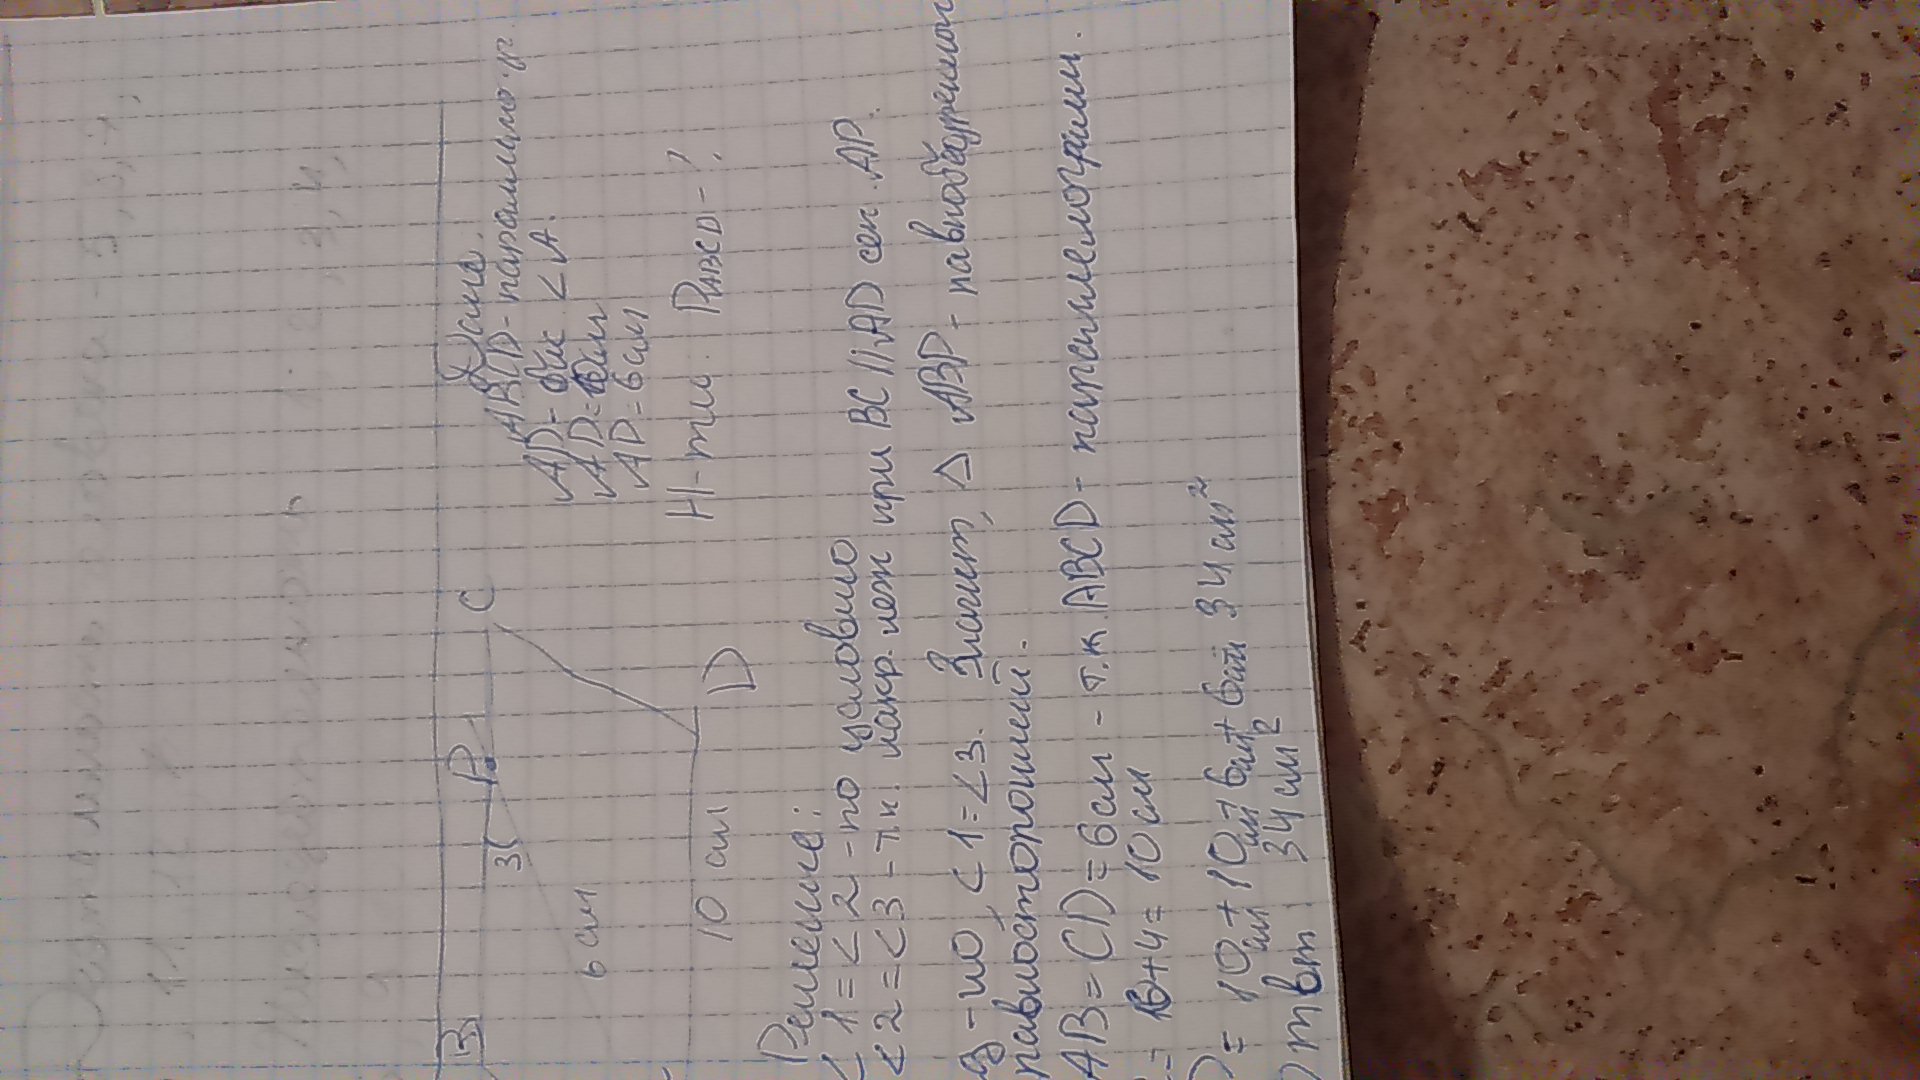 B
P
C
3
6 см
10 см
D
Дано
ABCD - параллело.г
AD - бис < A.
AD = 10см
AD = 6 см
Н-ти: PABCD - ?
Решение:
< 1 = < 2 - по условию
< 2 = < 3 - т.к. накр. леж при BC || AD сек. AP.
- но < 1 = < 3. Значит, Δ ABP - равнобедренной
равносторонний.
AB = CD = 6см - т.к. ABCD - параллелограмм.
= 6+4= 10 см
= 10см + 10см + 6см + 6см 34 см²
Ответ: 34 см²